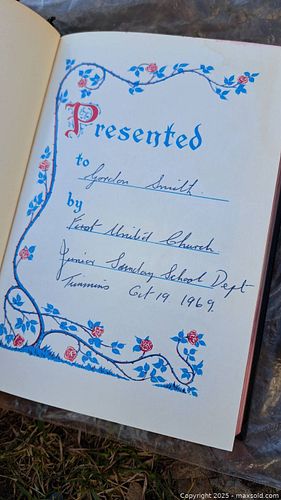 Presented
to
Gordon Smith.
by
First United Church
Junior Sunday School Dept
Timmins Oct 19, 1969.
Copyright 2025 - maxsold.com